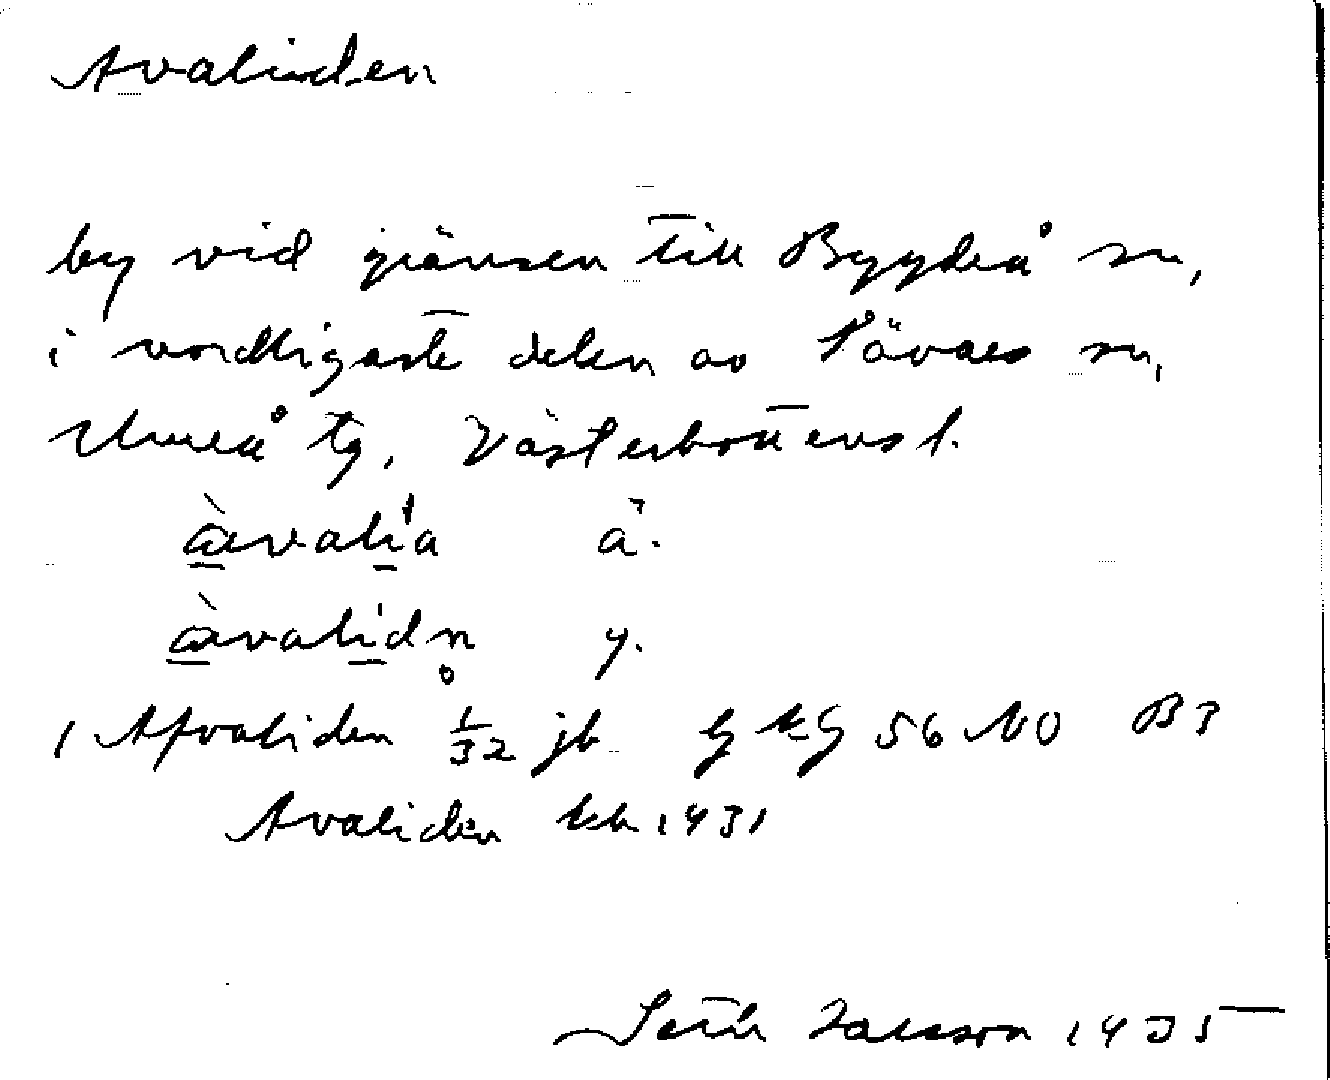 Avaliden
by vid gränsen till Bygdeå sn,
i nordligaste delen av Sävars sn,
Umeå tg, Västerbottens l.
àvalia ä.
àvalidn y.
1 Afvaliden 1/32 jb 56 NO B3
Avaliden 1931
Seth Jansson 1935